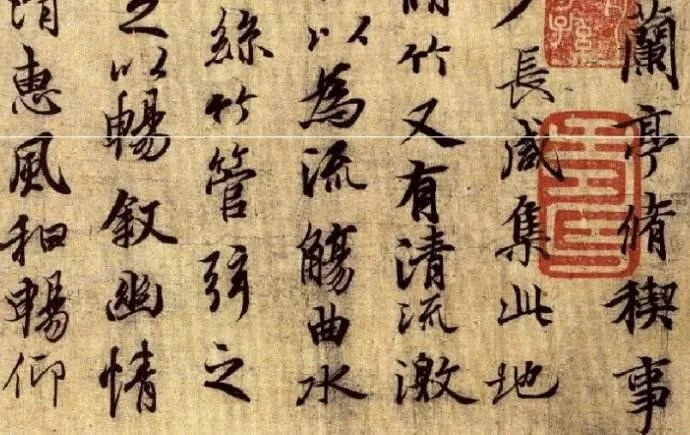 蘭亭脩稧事
長咸集此地
竹又有清流激
以為流觴曲水
絲竹管弦之
以暢敘幽情
清惠風和暢仰